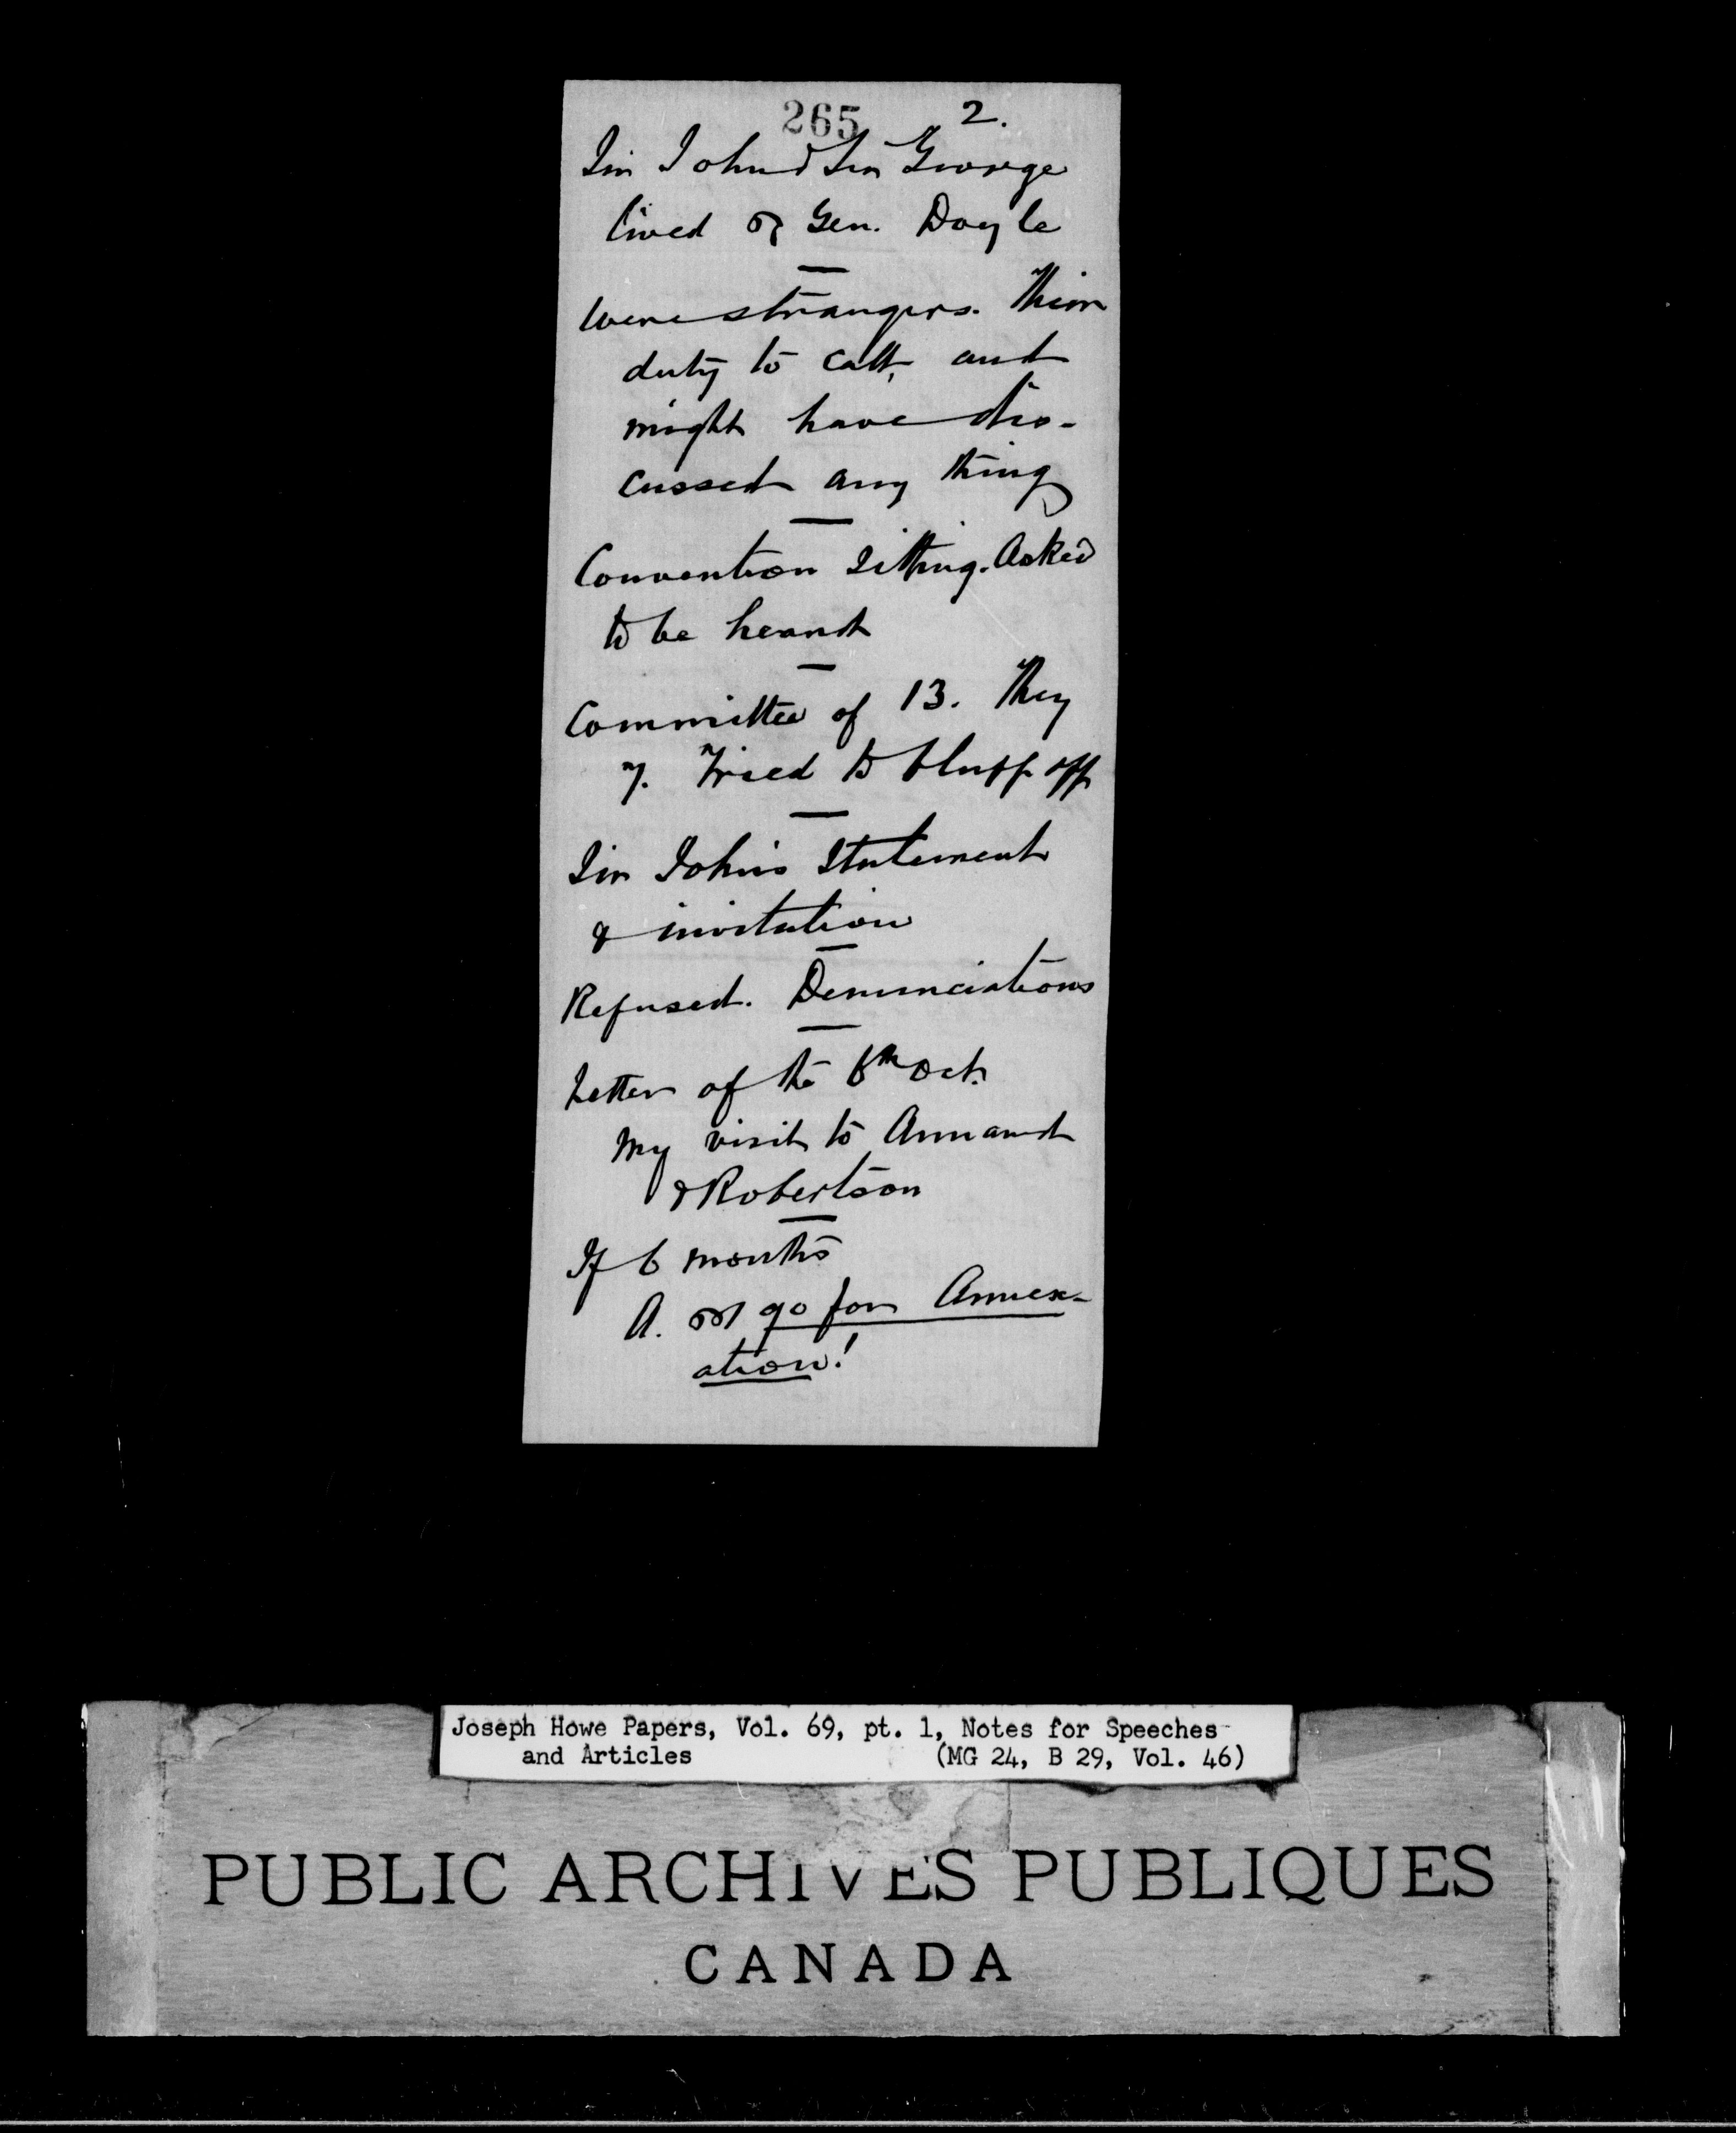 265 2.
Sir John & Sir George
lived Gen. Doyle
Were strangers. Their
duty to call, and
might have dis-
cussed any thing
Convention Sitting. Asked
to be heard
Committee of 13. They
7. Tried to bluff off
Sir John's Statement
& invitation
Refused. Denunciations
Letter of the 6th Oct.
My visit to Annand
& Robertson
If 6 months
A. go for Annex-
ation!
Joseph Howe Papers, Vol. 69, pt. 1, Notes for Speeches
and Articles (MG 24, B 29, Vol. 46)
PUBLIC ARCHIVES PUBLIQUES
CANADA